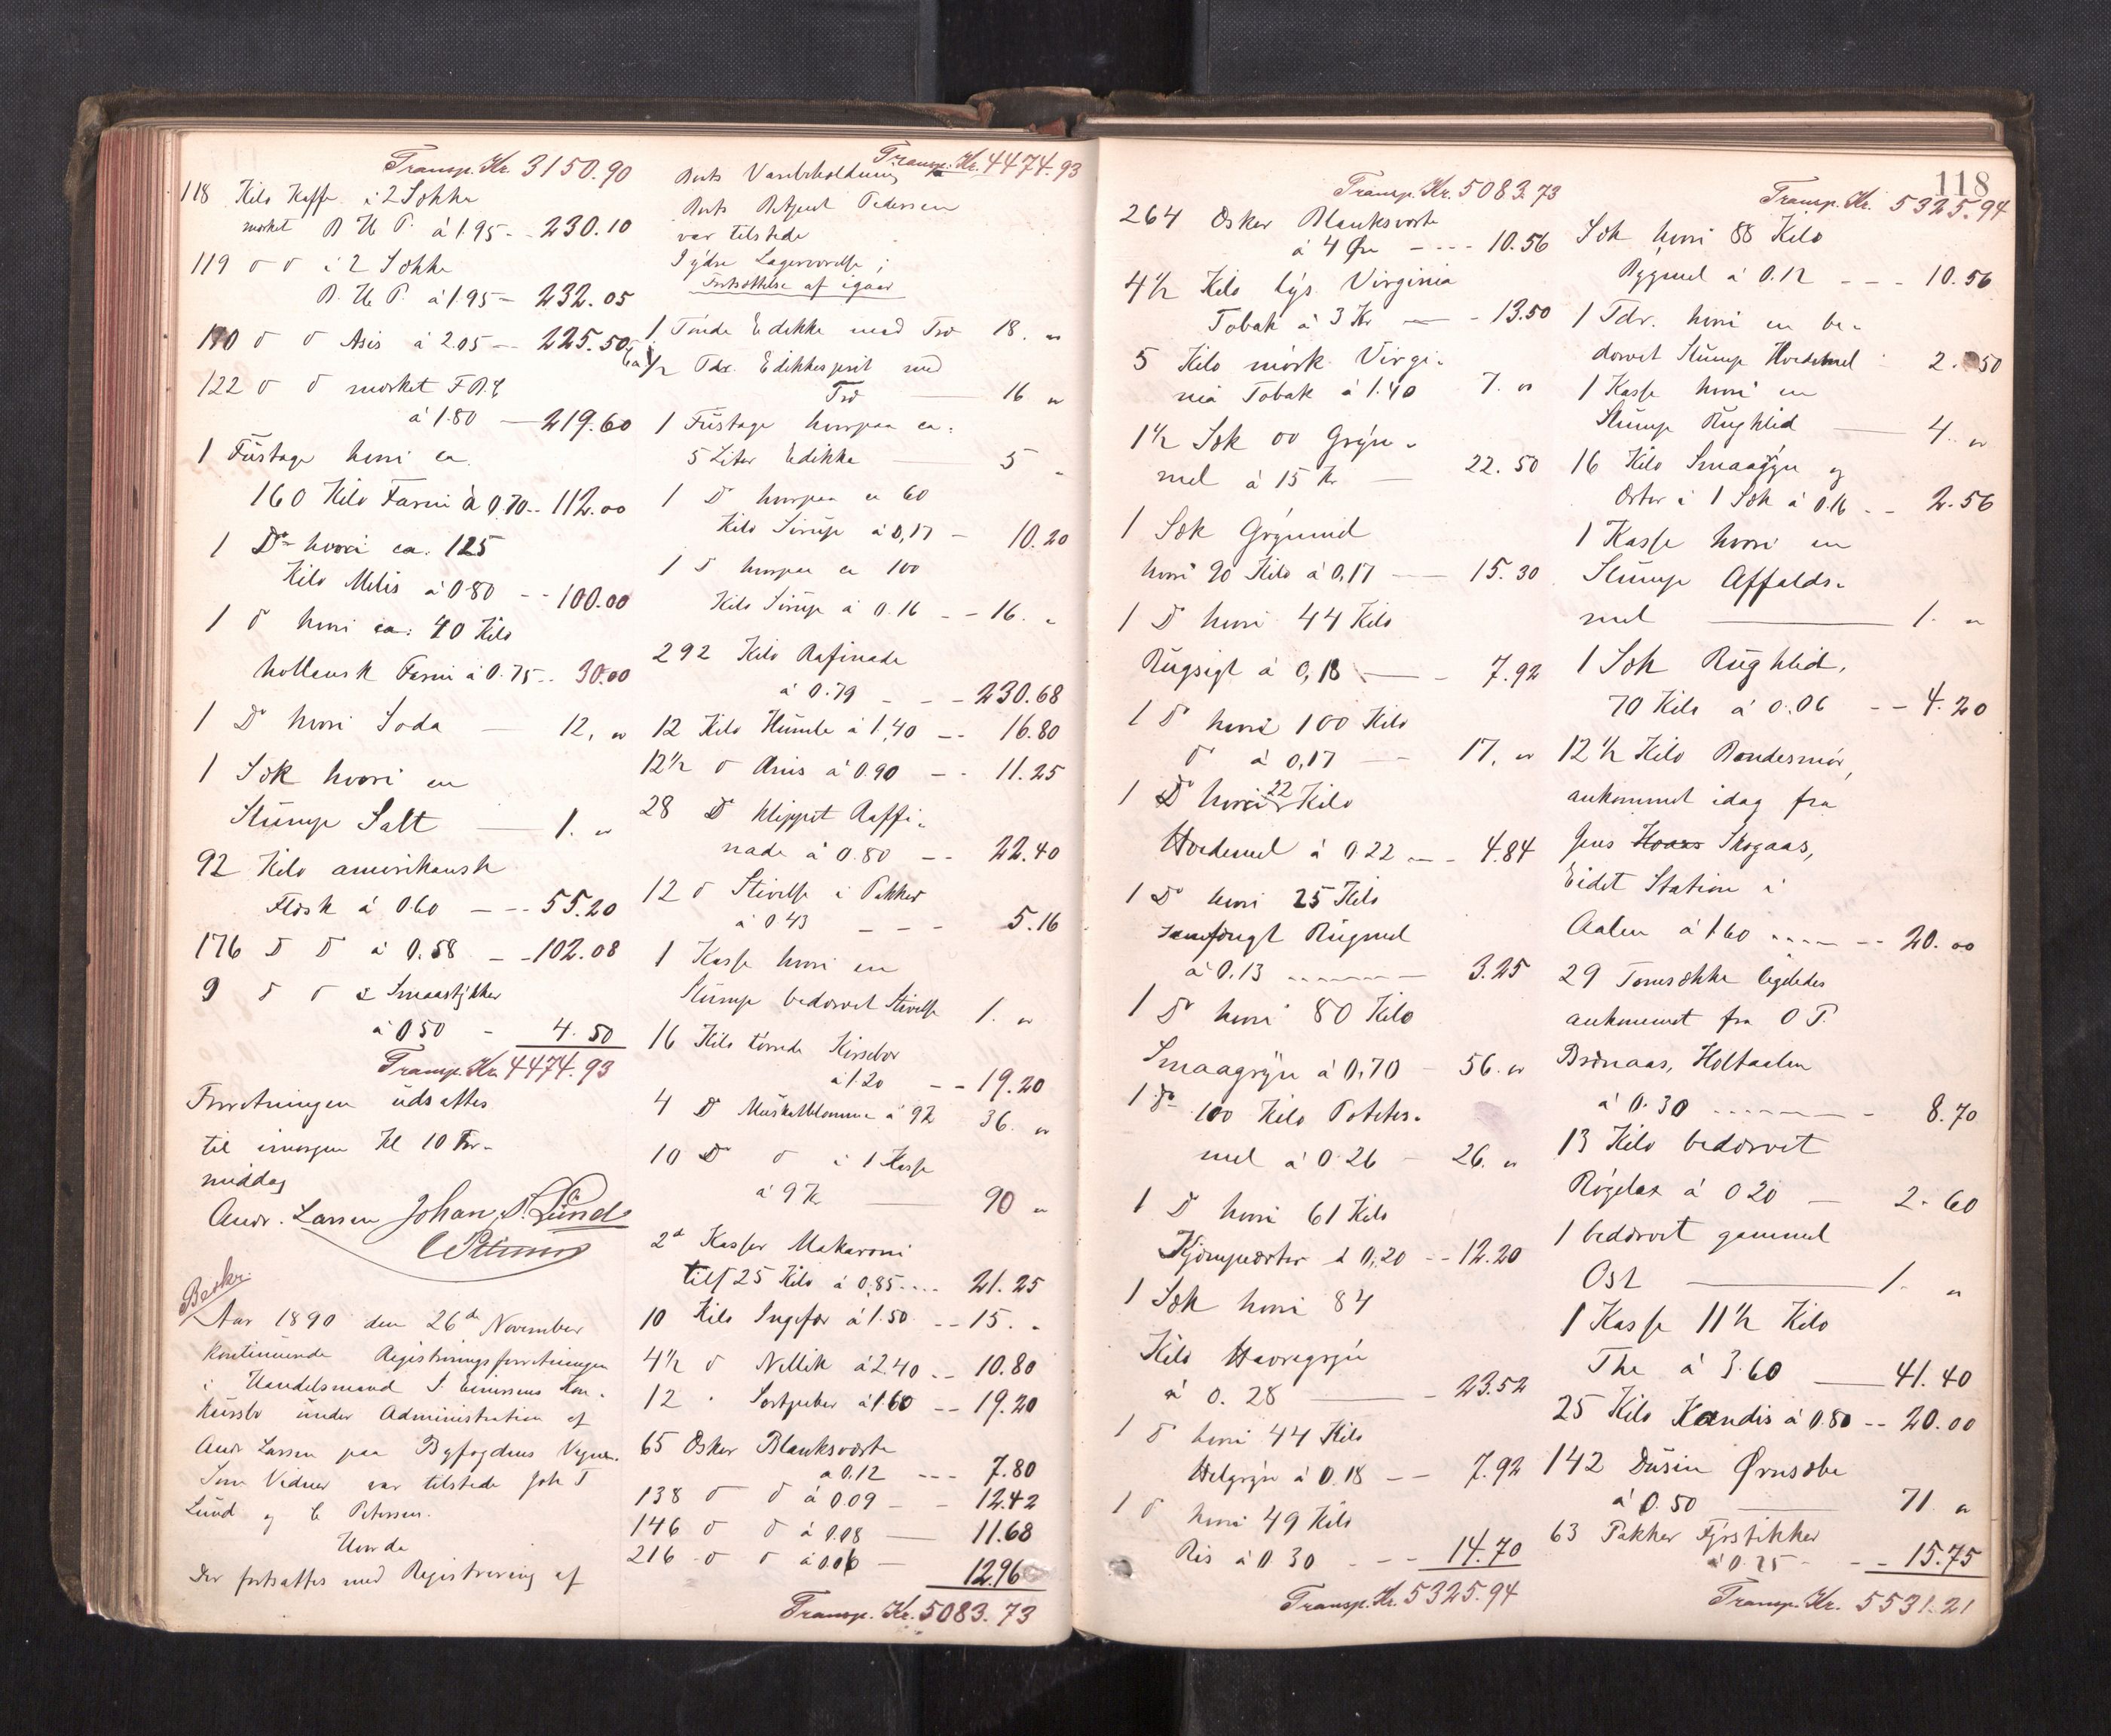 Transp. Kr. 3150.90
118 Kilo Kaffe i 2 Sække
mærket B U P. à 1.95 - - 230.10
119 do do i 2 Sække
B. U P. à 1.95 - 232.05
110 do do Asis à 2.05 - - 225.50
122 do do mærket F B.
à 1.80 - 219.60
1 Fustage hvori ca.
160 Kilo Farin à 0.70 - - 112.00
1 Do hvori ca. 125
Kilo Melis à 0.80 - - 100.00
1 do hvori ca. 40 Kilo
hollansk Farin à 0.75 - - 30.00
1 Do hvori Soda - 12. "
1 Sæk hvori en
Slump Salt - 1. "
92 Kilo amerikansk
Flesk à 0.60 - - - 55.20
176 do do à 0.58 - - 102.08
9 do do i Smaastykker
à 0.50 - 4.50
Transp. Kr. 4474.93
Forretningen udsattes
til imorgen Kl 10 For-
middag
Andr. Larsen Johan T. Lund
C Petersen
Beskr.
Aar 1890 den 26de November
kontinuerede Registreringsforretningen
i Handelsmand S. Einersens Kon-
kursbo under Administration af
Andr Larsen paa Byfogdens Vegne.
Som Vidner var tilstede Joh T
Lund og C Petersen.
Hvorda
Der fortsattes med Registrering af
Transp. Kr. 4474.93
Boets Varebeholdning
Boets Betjent Pedersen
var tilstede
I ydre Lagerværelse;
Fortsættelse af igaar
1 Tønde Edikke med Træ 18. "
ca 1/2 Tdr. Edikkesprit med
Træ - 16 "
1 Fustage hvorpaa ca.
5 Liter Edikke - 5 "
1 Do hvorpaa ca 60
Kilo Sirup à 0,17 - 10.20
1 do hvorpaa ca 100
Kilo Sirup à 0.16 - - 16. "
292 Kilo Rafinade
à 0.79 - - - 230.68
12 Kilo Humle à 1,40 - - 16.80
12 1/2 do Anis à 0.90 - - 11.25
28 Do klippet Raffi-
nade à 0.80 - - 22.40
12 do Stivelse i Pakker
à 0.43 - - - 5.16
1 Kasse hvori en
Slump bedærvet Stivelse 1. "
16 Kilo tørrede Kirsebær
à 1.20 - - 19.20
4 Do Muskatblomme à 9 Kr 36. "
10 Do do i 1 Kasse
à 9 Kr - 90 "
2 Kasser Makaroni
tils 25 Kilo à 0,85 - - - 21.25
10 Kilo Ingefær à 1.50 - - 15. "
4 1/2 do Nellik à 2.40 - - 10.80
12 " Sortpeber à 1.60 - - 19.20
65 Æsker Blanksværte
à 0.12 - - - 7.80
138 do do à 0.09 - - 12.42
146 do do à 0.08 - 11.68
216 do do à 0.06 - 12.96
Transp. Kr. 5083.73
118
Transp. Kr. 5083.73
264 Æsker Blanksværte
à 4 Øre - - - - 10.56
4 1/2 Kilo lys Virginia
Tobak à 3 Kr - - 13.50
5 Kilo mørk Virgi-
nia Tobak à 1.40 7. "
1 1/2 Sæk 00 Gryn-
mel à 15 Kr - 22.50
1 Sæk Grynmel
hvori 90 Kilo à 0,17 - 15.30
1 Do hvori 44 Kilo
Rugsigt à 0,18 - - 7.92
1 Do hvori 100 Kilo
do à 0,17 - - 17. "
1 Do hvori 22 Kilo
Hvedemel à 0 22 - - 4.84
1 Do hvori 25 Kilo
samfængt Rugmel
à 0.13 - - - - 3.25
1 Do hvori 80 Kilo
Smaagryn à 0,70 - 56. "
1 Do 100 Kilo Potetes-
mel à 0 26 - 26. "
1 Do hvori 61 Kilo
Kjæmpeærter à 0,20 - - 12.20
1 Sæk hvori 84
Kilo Havregryn
à 0.28 - - 23.52
1 do hvori 44 Kilo
Helgryn à 0.18 - - 7.92
1 do hvori 49 Kilo
Ris à 0 30 - - - 14.70
Transp. Kr. 5325.94
Transp. Kr. 5325.94
Sæk hvori 88 Kilo
Bygmel à 0.12 - - - 10.56
1 Tdr. hvori en be-
dærvet Slump Hvedemel 2.50
1 Kasse hvori en
Slump Rughlid - 4. "
16 Kilo Smaagryn og
Ærter i 1 Sæk à 0.16 - - 2.56
1 Kasse hvori en
Slump Affalds-
mel - 1. "
1 Sæk Rughlid,
70 Kilo à 0.06 - - 4.20
12 1/2 Kilo Bondesmør,
ankommet idag fra
Jens Skogaas,
Eidet Station i
Aalen à 1 60 - - - - 20.00
29 Tomsække ligeledes
ankommet fra O P.
Brønaas, Holtaalen
à 0.30 - - - - - 8.70
13 Kilo bedærvet
Røgelax à 0 20 - 2.60
1 bedærvet gammel
Ost - 1. "
1 Kasse 11 1/2 Kilo
The à 3.60 - 41.40
25 Kilo Kandis à 0.80 - - 20.00
142 Dusin Ørnsæbe
à 0.50 - 71. "
63 Pakker Fyrstikker
à 0.25 - - - 15.75
Transp. Kr. 5531.21